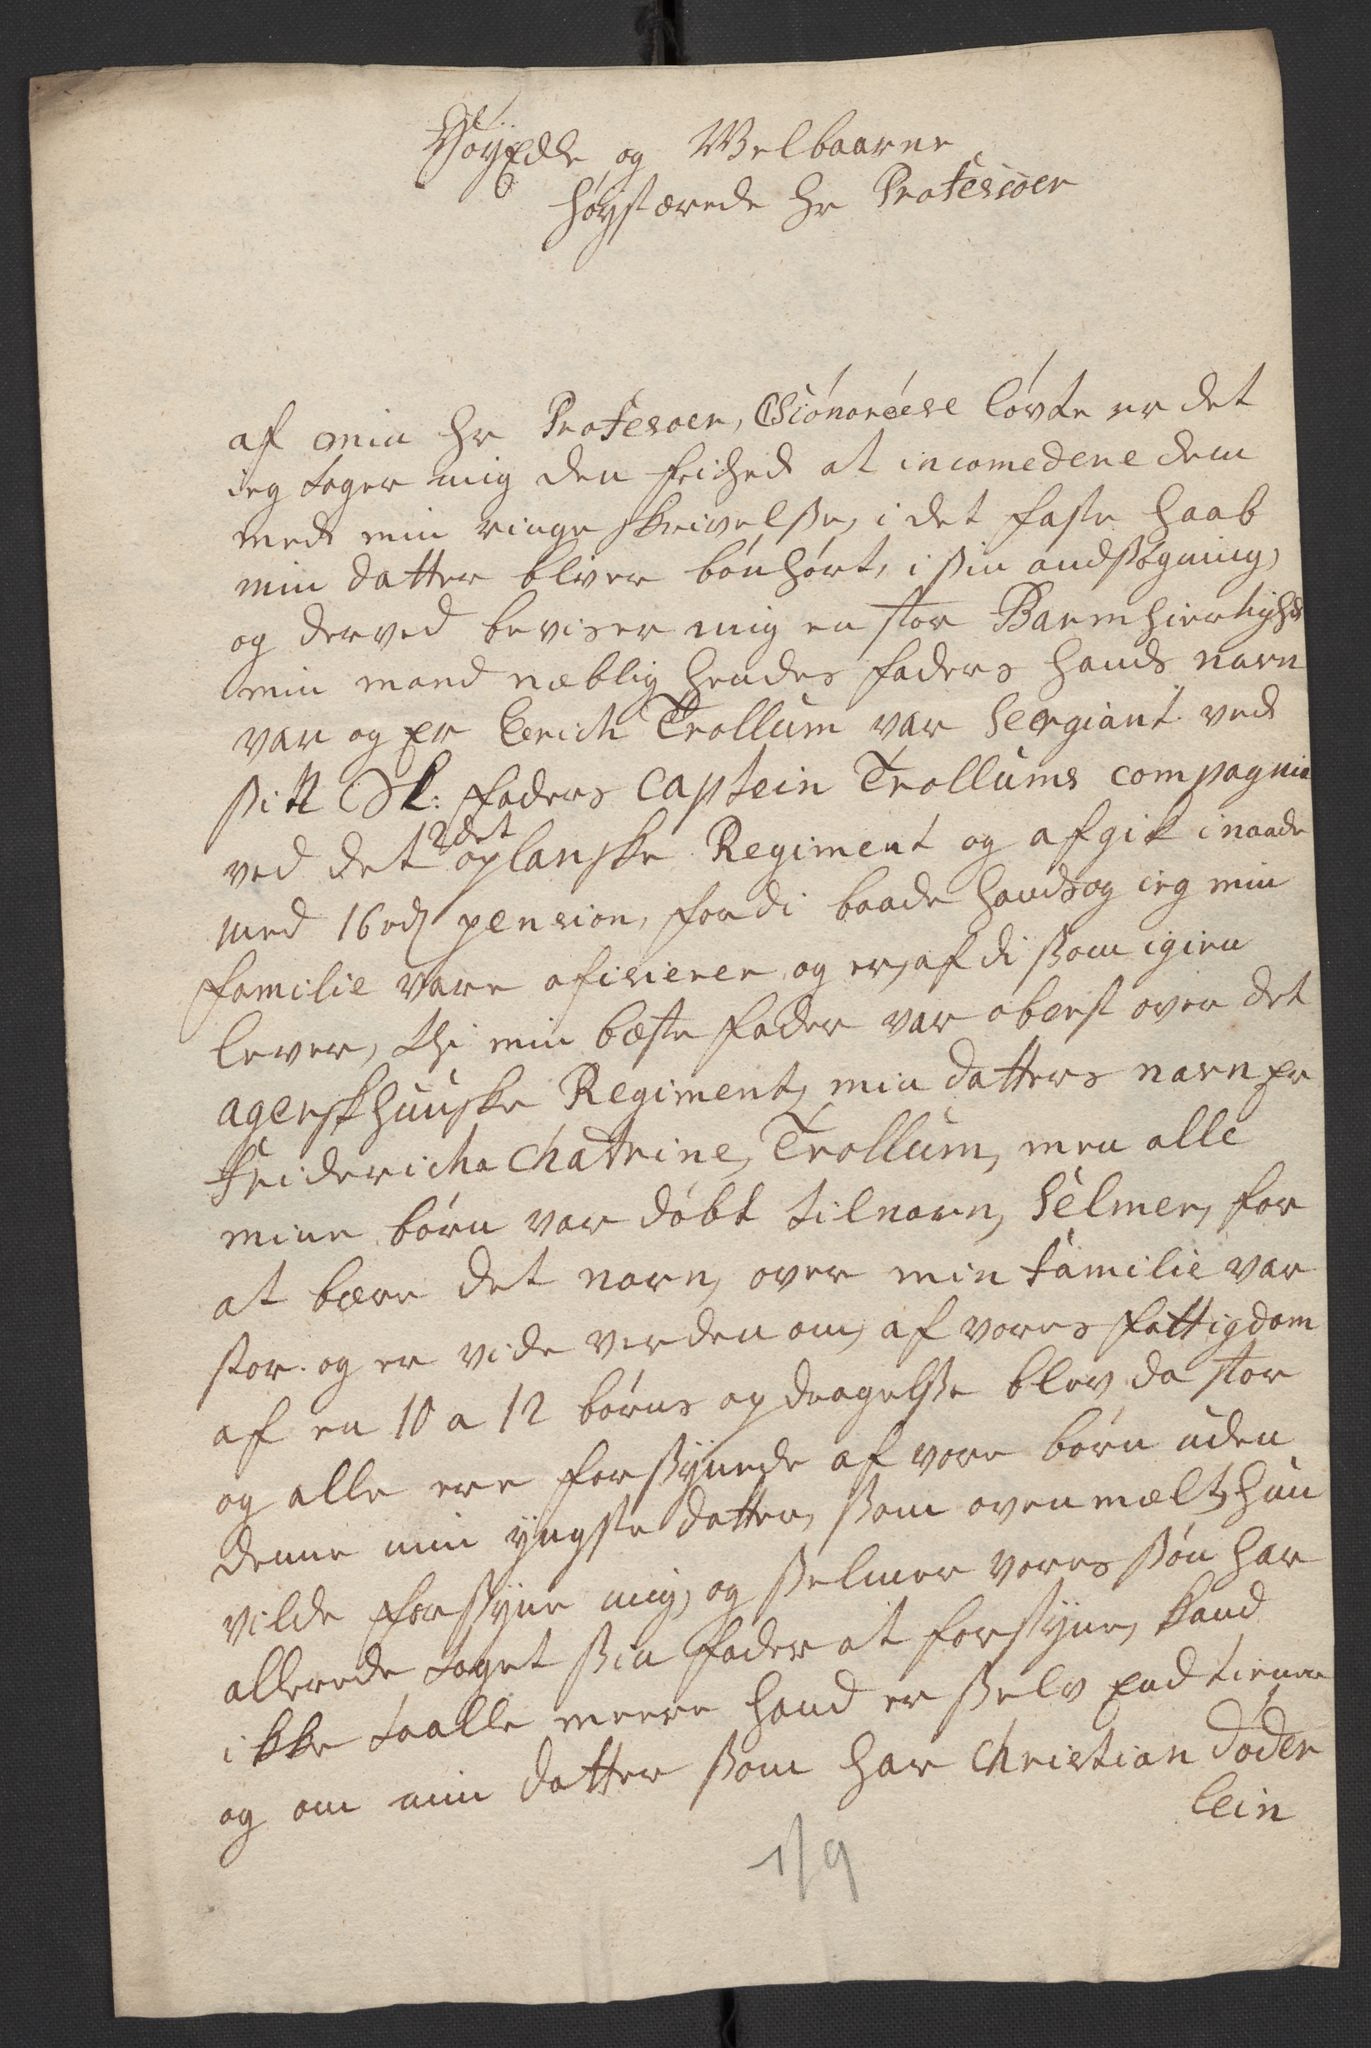 HøyEdle og Welbaarne
høystærede Hr Professoer
af min Hr Professoer, løvte er det
ieg tager mig den frihed at incomedere dem
med min ringe skrivelsse, i det faste haab
min datter bliver bønhørt, i sin andsøgning,
og derved beviser mig en stor Barmhiertighed
min mand næblig hendes faders hands navn
var og Er Erich Trollum var Sergiant ved
sitt Sl: faders Captein Trollums compagnie
ved det 2det oplanske Regiment og afgik i naade
med 16 rd pension, fordi baade hands og ieg min
familie vare ofisierer, og er, af di som igien
lever, thi min bæste fader var oberst over det
agershuuske Regiment, min datters navn Er
friderricha Chatrine, Trollum, men alle
mine børn var døbt tilnavn, Selmer, for
at bære det navn, over min familie var
stor. og er vide verden om, af vores fattigdom
af en 10 a 12 børns opdragelsse blev da stor
og alle ere forsynede af vore børn uden
denne min yngste datter, som ovenmælt, hun
vilde forsyne mig, og selmer vores søn har
allerede taget sin fader at forsyne, kand
ikke taalle meere hand er selv End tienere
og om min datter som har Christian Døder
lein
1/9